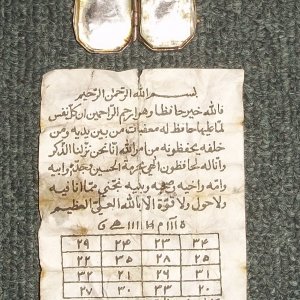 بسم الله الرحمن الرحيم
فالله خير حافظا وهو ارحم الراحمين ان كل نفس
لما عليها حافظ له معقبات من بين يديه ومن
خلفه يحفظونه من امر الله انا نحن نزلنا الذكر
وانا له لحافظون الهي بحرمة الحسين وجده وابيه
وامه واخيه وبنيه نجني مما انا فيه
ولا حول ولا قوة الا بالله العلي العظيم
٢٩ ٢٤ ٢٣ ٣٤
٢٢ ٣٥ ٢٨ ٢٥
٣٢ ٢١ ٢٦ ٣١
٢٧ ٣٠ ٣٣ ٢٠